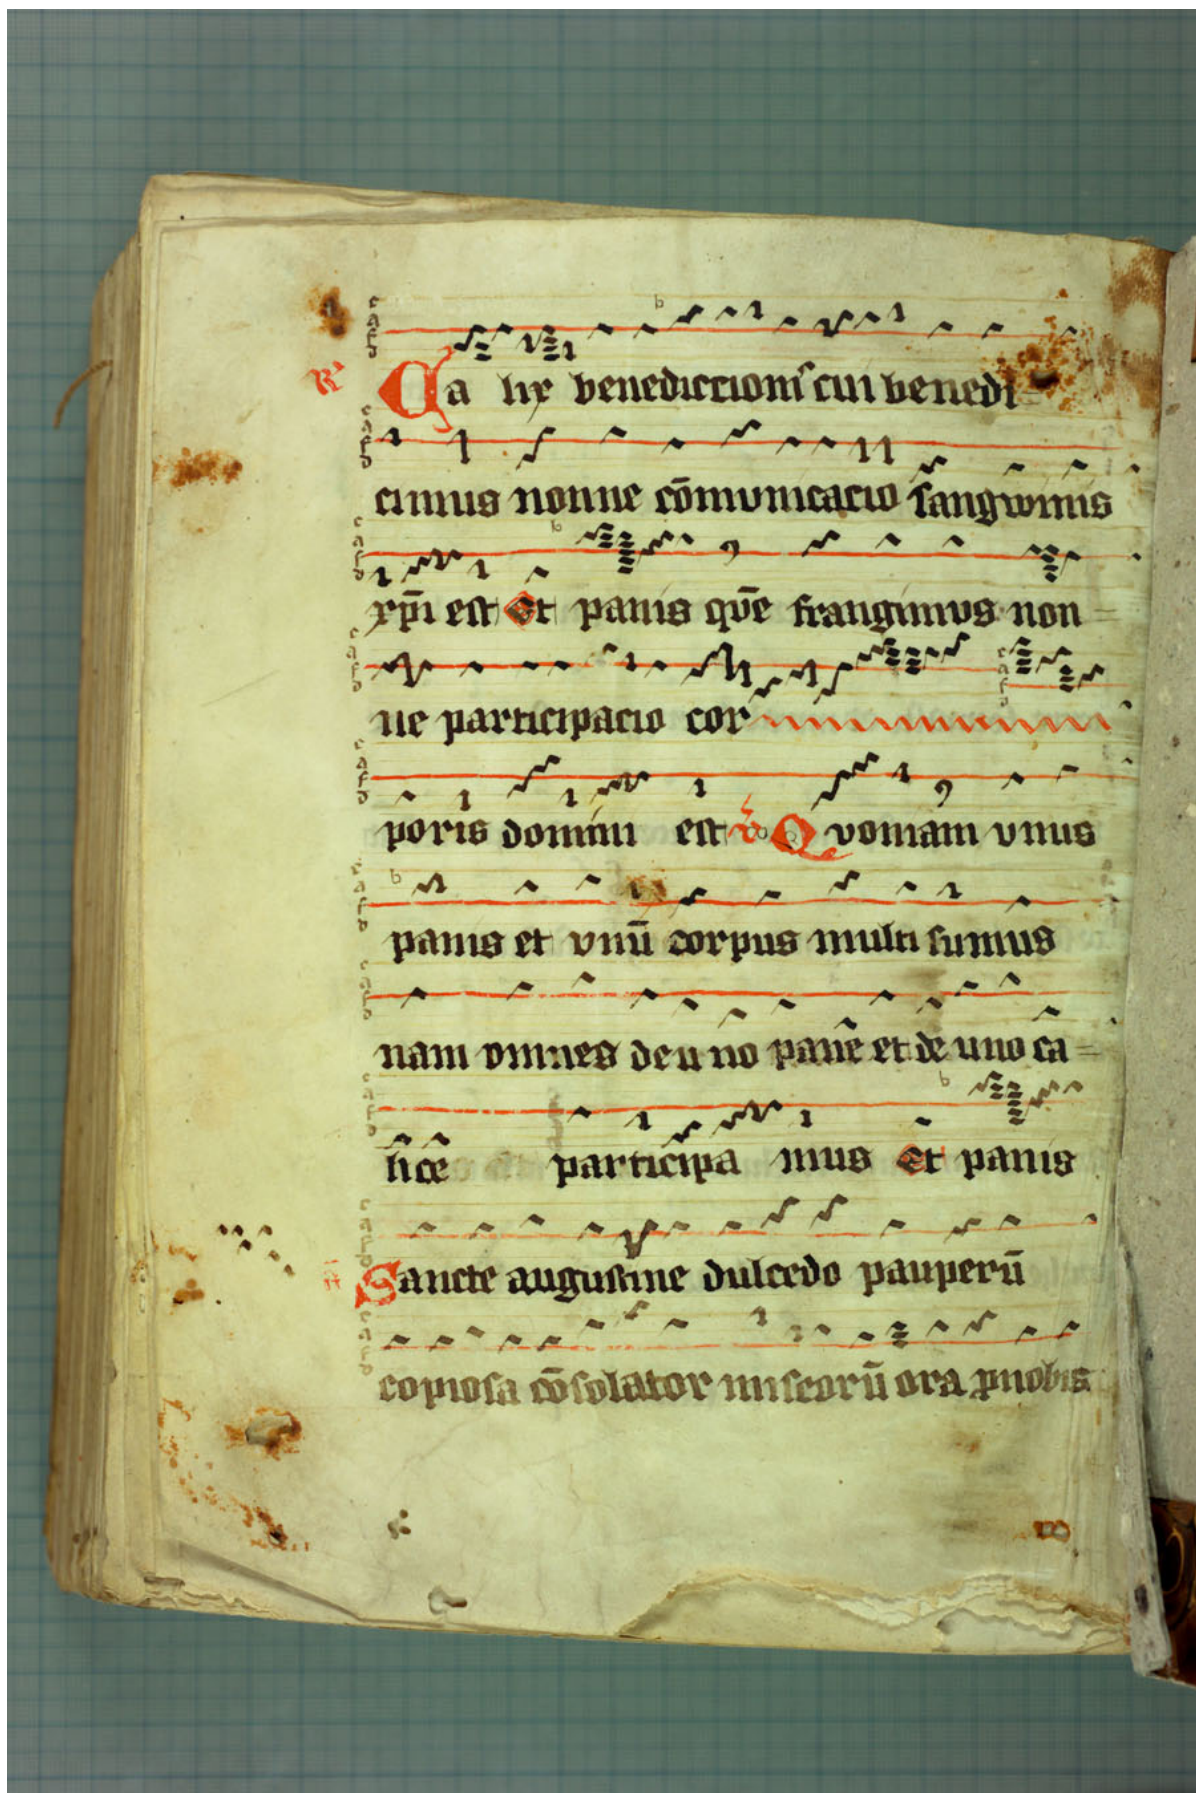 R Ca lix benediccionis cui benedi=
cimus nonne cōmunicacio sangwinis
xp̄i est Et panis quē frangimus non=
ne participacio cor
poris domini est v Quoniam vnus
panis et vnū corpus multi sumus
nam omnes de u no pane et de uno ca=
lice participa mus Et panis
Sancte augustine dulcedo pauperū
copiosa cōsolator miserorū ora pnobis